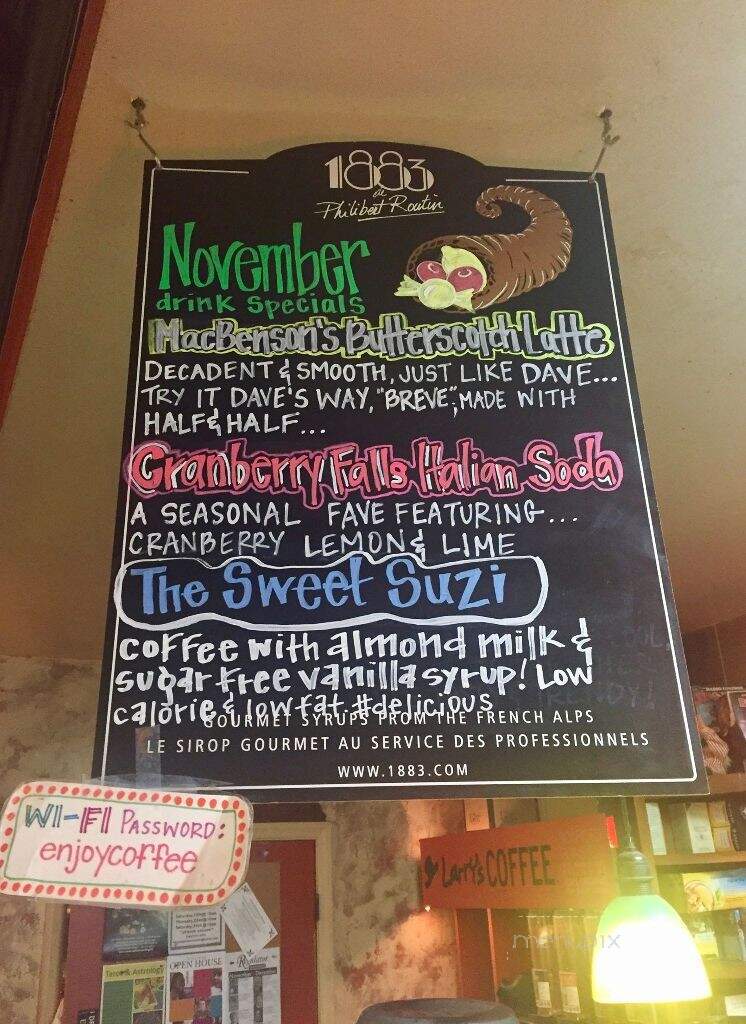 1883
de
Philibert Routin
November
drink Specials
MacBenson's Butterscotch Latte
DECADENT & SMOOTH, JUST LIKE DAVE...
TRY IT DAVE'S WAY, "BREVE", MADE WITH
HALF & HALF...
Cranberry Falls Italian Soda
A SEASONAL FAVE FEATURING...
CRANBERRY LEMON & LIME
The Sweet Suzi
coffee with almond milk &
sugar free vanilla syrup! Low
calorie & low fat. #delicious
GOURMET SYRUPS FROM THE FRENCH ALPS
LE SIROP GOURMET AU SERVICE DES PROFESSIONNELS
WWW.1883.COM
WI-FI PASSWORD:
enjoycoffee
Larry's COFFEE
menupix
Tarot & Astrology
OPEN HOUSE